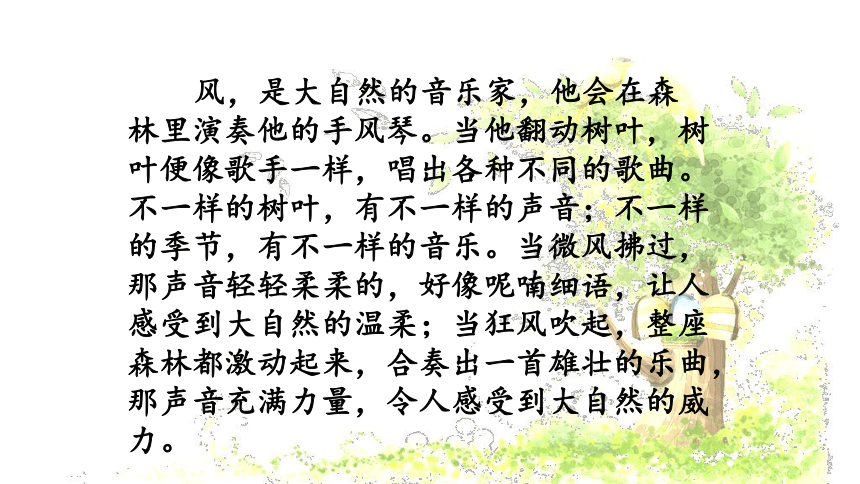 风，是大自然的音乐家，他会在森
林里演奏他的手风琴。当他翻动树叶，树
叶便像歌手一样，唱出各种不同的歌曲。
不一样的树叶，有不一样的声音；不一样
的季节，有不一样的音乐。当微风拂过，
那声音轻轻柔柔的，好像呢喃细语，让人
感受到大自然的温柔；当狂风吹起，整座
森林都激动起来，合奏出一首雄壮的乐曲，
那声音充满力量，令人感受到大自然的威
力。